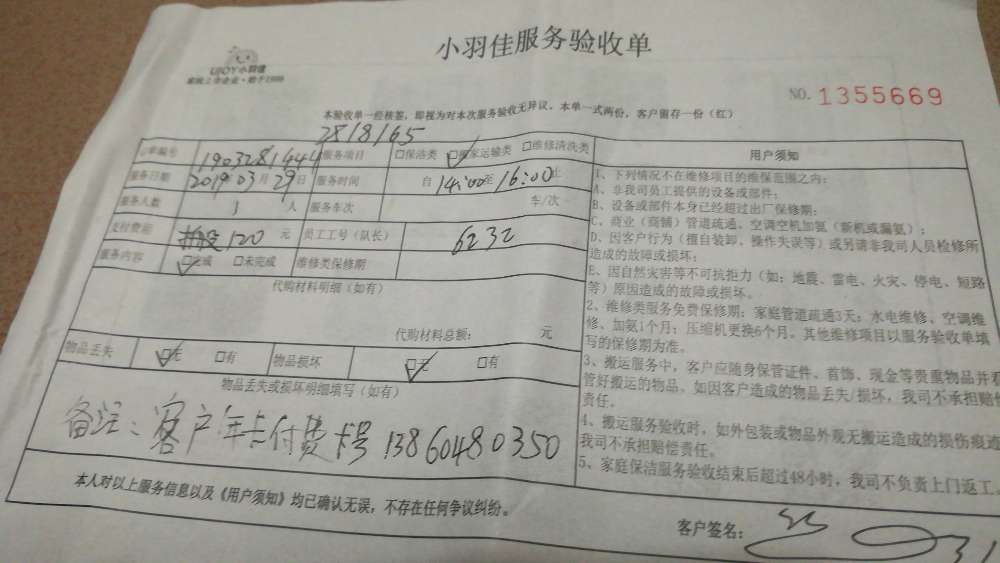 UJOY小羽佳
家政上市企业·始于1999
小羽佳服务验收单
NO. 1355669
本验收单一经核签，即视为对本次服务验收无异议。本单一式两份，客户留存一份（红）
2818165
订单编号 1903281444 服务项目 □保洁类 ☑搬家运输类 □维修清洗类
服务日期 2019年03月29日 服务时间 自 14:00至16:00止
服务人数 1 人 服务车次 车/次
支付费用 120 元 员工工号（队长） 6232
服务内容 ☑完成 □未完成 维修类保修期
代购材料明细（如有）
代购材料总额： 元
物品丢失 ☑无 □有 物品损坏 ☑无 □有
物品丢失或损坏明细填写（如有）
备注：客户年卡付费卡号13860480350
本人对以上服务信息以及《用户须知》均已确认无误，不存在任何争议纠纷。
用户须知
1、下列情况不在维修项目的维保范围之内：
A、非我司员工提供的设备或部件；
B、设备或部件本身已经超过出厂保修期；
C、商业（商铺）管道疏通、空调空机加氨（新机或漏氨）；
D、因客户行为（擅自装卸、操作失误等）或另请非我司人员检修所
造成的故障或损坏；
E、因自然灾害等不可抗拒力（如：地震、雷电、火灾、停电、短路
等）原因造成的故障或损坏。
2、维修类服务免费保修期：家庭管道疏通3天；水电维修、空调维
修、加氨1个月；压缩机更换6个月。其他维修项目以服务验收单填
写的保修期为准。
3、搬运服务中，客户应随身保管证件、首饰、现金等贵重物品并看
管好搬运的物品。如因客户造成的物品丢失/损坏，我司不承担赔偿
责任。
4、搬运服务验收时，如外包装或物品外观无搬运造成的损伤痕迹
我司不承担赔偿责任。
5、家庭保洁服务验收结束后超过48小时，我司不负责上门返工。
客户签名：